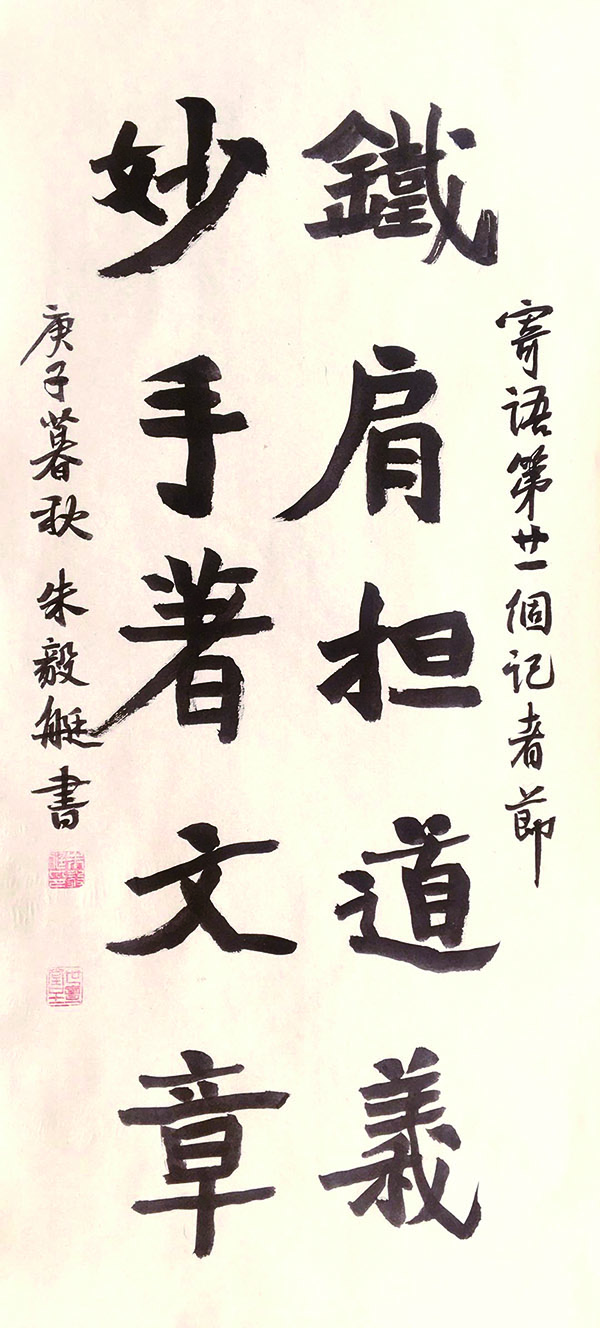 寄语第廿一個记者節
鐵肩担道義
妙手著文章
庚子暮秋 朱毅艇書